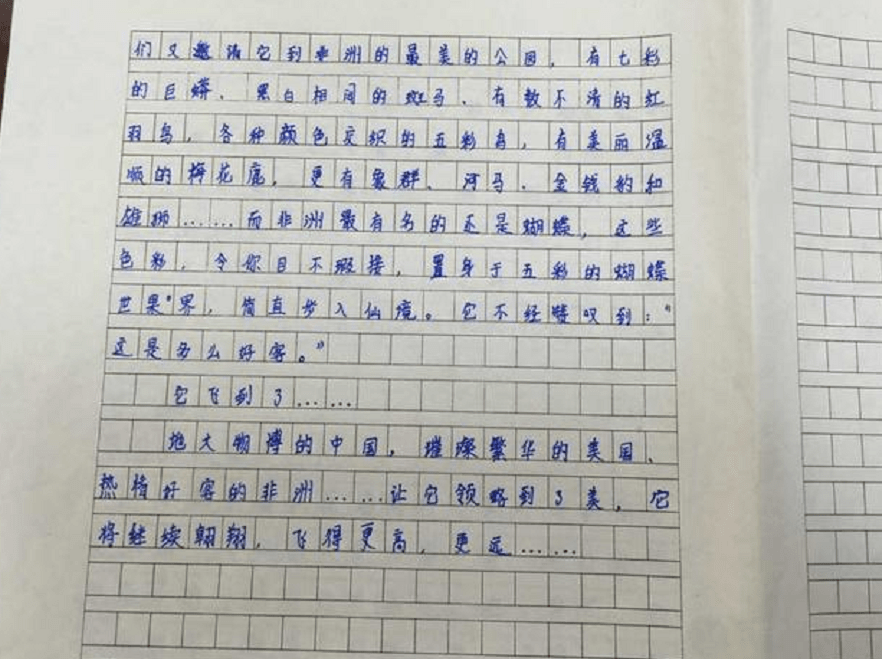 们又邀请它到非洲的最美的公园，有七彩
的巨蟒、黑白相间的斑马、有数不清的红
羽鸟，各种颜色交织的五彩鸟，有美丽温
顺的梅花鹿，更有象群、河马、金钱豹和
雄狮……而非洲最有名的还是蝴蝶，这些
色彩，令你目不暇接，置身于五彩的蝴蝶
世界，简直步入仙境。它不经赞叹到：“
这是多么好客。”
它飞到了……
地大物博的中国，璀璨繁华的美国、
热情好客的非洲……让它领略到了美，它
将继续翱翔，飞得更高，更远……